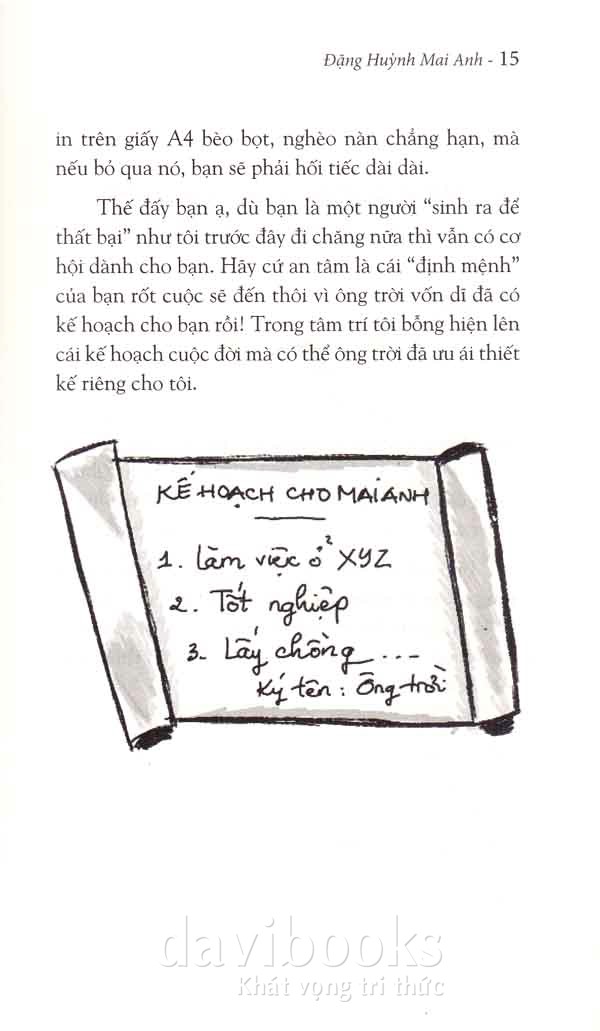 Đặng Huỳnh Mai Anh - 15
in trên giấy A4 bèo bọt, nghèo nàn chẳng hạn, mà
nếu bỏ qua nó, bạn sẽ phải hối tiếc dài dài.
Thế đấy bạn ạ, dù bạn là một người “sinh ra để
thất bại” như tôi trước đây đi chăng nữa thì vẫn có cơ
hội dành cho bạn. Hãy cứ an tâm là cái “định mệnh”
của bạn rốt cuộc sẽ đến thôi vì ông trời vốn dĩ đã có
kế hoạch cho bạn rồi! Trong tâm trí tôi bỗng hiện lên
cái kế hoạch cuộc đời mà có thể ông trời đã ưu ái thiết
kế riêng cho tôi.
KẾ HOẠCH CHO MAI ANH
1. Làm việc ở XYZ
2. Tốt nghiệp
3. Lấy chồng ...
Ký tên : Ông trời
davibooks
Khát vọng tri thức